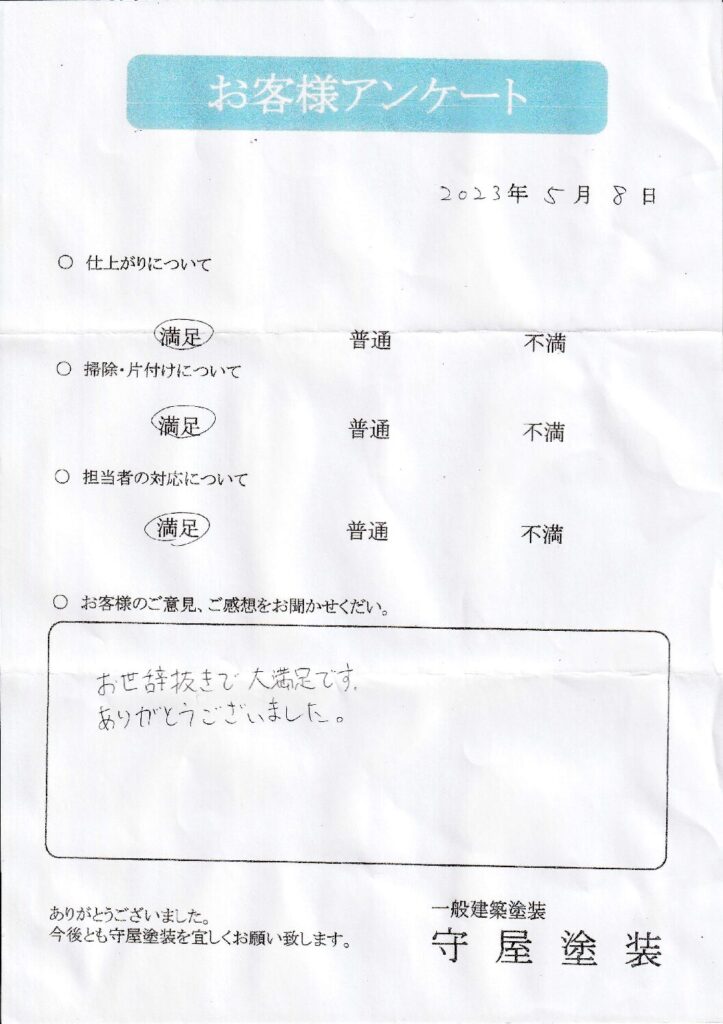 お客様アンケート
2023年 5月 8日
○ 仕上がりについて
満足 普通 不満
○ 掃除・片付けについて
満足 普通 不満
○ 担当者の対応について
満足 普通 不満
○ お客様のご意見、ご感想をお聞かせくだい。
お世辞抜きで大満足です.
ありがとうございました。
ありがとうございました。
今後とも守屋塗装を宜しくお願い致します。
一般建築塗装
守屋塗装